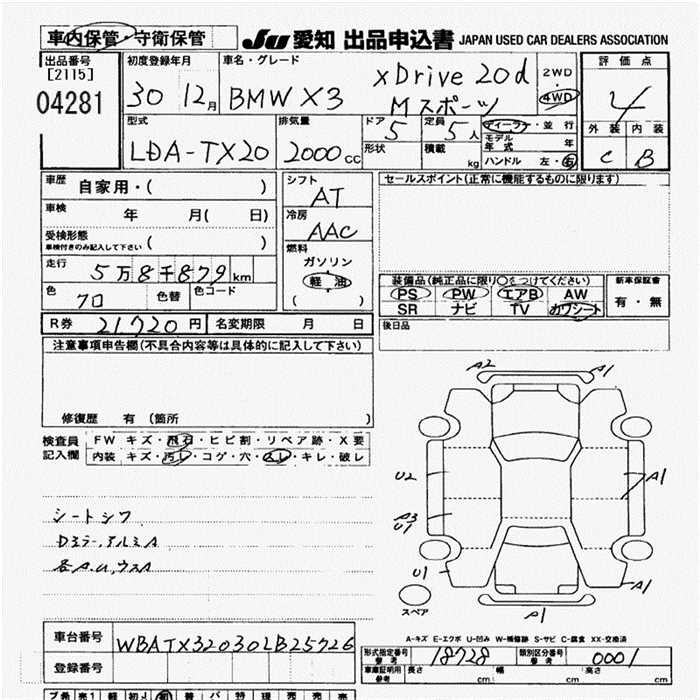 車内保管・守衛保管 JU 愛知 出品申込書 JAPAN USED CAR DEALERS ASSOCIATION
出品番号 初度登録年月 車名・グレード 評価点
[2115] 30 12月 BMW X3 xDrive 20d 2WD
04281 Mスポーツ 4WD 4
型式 排気量 ドア 定員 ディーラー・並行 外装 内装
LDA-TX20 2000CC 5 5人 モデル年式 年 C B
形状 積載 kg ハンドル 左・右
車歴 自家用・( ) シフト セールスポイント(正常に機能するものに限ります)
AT
車検 年 月( 日) 冷房
AAC
受検形態
車検付きのみ記入して下さい ( ) 燃料
走行 5万8千879km ガソリン
軽油 装備品(純正品に限り○をつけてください) 新車保証書
色 クロ 色替 色コード ( ) PS PW エアB AW 有・無
SR ナビ TV カワシート
R券 21720円 名変期限 月 日 後日品
注意事項申告欄(不具合内容等は具体的に記入して下さい)
修復歴 有 (箇所 )
検査員 FW キズ・飛石・ヒビ割・リペア跡・X要
記入欄 内装 キズ・汚レ・コゲ・穴・スレ・キレ・破レ
A2 A1
U2 A1
A3
U1
U1 A1
A1
スペア
シートシワ
Dミラー、アルミA
各A.U,ウスA
A-キズ E-エクボ U-凹み W-補修跡 S-サビ C-腐食 XX-交換済
車台番号 WBATX32030LB25726
型式指定番号 参考 18728 類別区分番号 参考 0001
登録番号 車庫証明用 参考 長さ cm 幅 cm 高さ cm